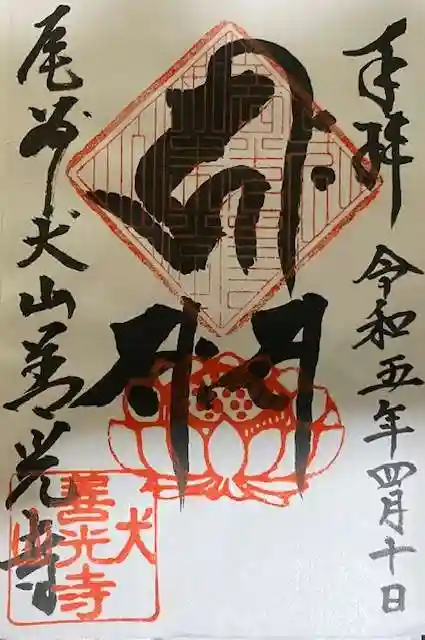 奉拝
令和五年四月十日
尾州犬山善光寺
犬山善光寺